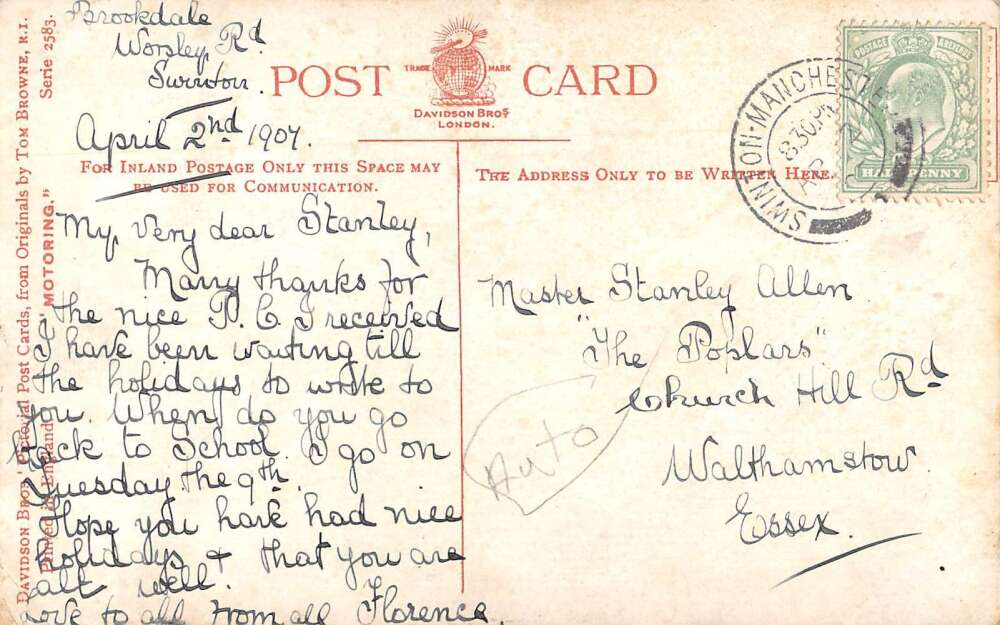 Brookdale
Worsley Rd
Swinton.
April 2nd 1907.
POST CARD
TRADE MARK
DAVIDSON BROS
LONDON.
FOR INLAND POSTAGE ONLY THIS SPACE MAY
BE USED FOR COMMUNICATION.
THE ADDRESS ONLY TO BE WRITTEN HERE.
My very dear Stanley,
Many thanks for
the nice P. C. I received
I have been waiting till
the holidays to write to
you. When do you go
back to School. I go on
Tuesday the 9th.
Hope you have had nice
holidays & that you are
all well.
Love to all from all Florence.
Master Stanley Allen
"The Poplars"
Church Hill Rd
Walthamstow.
Essex.
Auto
SWINTON-MANCHESTER
8.30 PM
POSTAGE & REVENUE
HALFPENNY
DAVIDSON BROS. Pictorial Post Cards, from Originals by TOM BROWNE, R.I. Serie 2583.
Printed in England
"MOTORING."